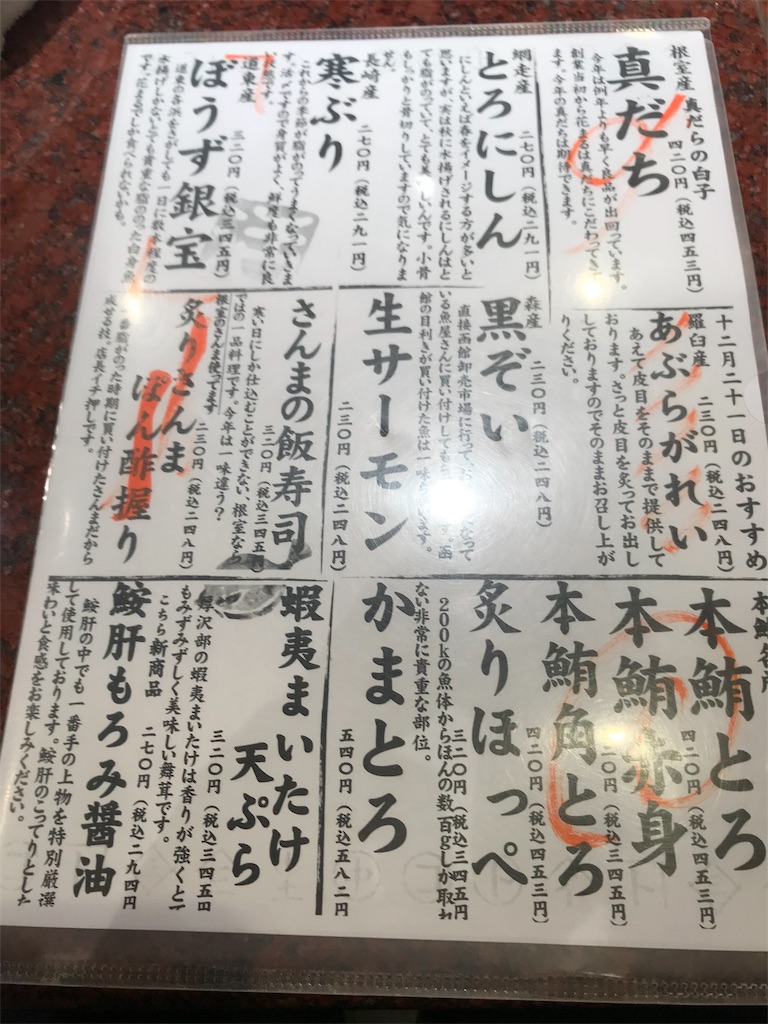 十二月二十一日のおすすめ
根室産 真だらの白子
真だち
四二〇円（税込四五三円）
今年は例年よりも早く良品が出回っています。
創業当初から花まるは真だちにこだわってき
ます。今年の真だちは期待できます。
網走産
とろにしん
二七〇円（税込二九一円）
にしんといえば春をイメージする方が多いと
思いますが、実は秋に水揚げされるにしんはと
ても脂がのっていて、とても美味しいんです。小骨
もしっかりと骨切りしていますので気になりま
せん。
長崎産
寒ぶり
二七〇円（税込二九一円）
これからの季節が脂がのってうまくなっていきま
す。活〆ですので身質がよく、鮮度も非常に良
い状態です。
道東産
ぼうず銀宝
三二〇円（税込三四五円）
道東の各浜をさがしても一日に数本程度の
水揚げしかないとても貴重な脂ののった白身魚
です。花まるでしか食べられないかも。
羅臼産
あぶらがれい
二三〇円（税込二四八円）
あえて皮目をそのままで提供して
おります。さっと皮目を炙ってお出し
しておりますのでそのままお召し上が
りください。
森産
黒ぞい
二三〇円（税込二四八円）
直接函館卸売市場に行って、
いる魚屋さんに買い付けしてもら
館の目利きが買い付けた魚は一味
生サーモン
二三〇円（税込二四八円）
さんまの飯寿司
三二〇円（税込三四五円）
寒い日にしか仕込むことができない、根室なら
ではの一品料理です。今年は一味違う？
根室産のさんま使ってます
炙りさんま
ぽん酢握り
二三〇円（税込二四八円）
一番脂がのった時期に買い付けたさんまだから
成せる技。店長イチ押しです。
本鮪とろ
四二〇円（税込四五三円）
本鮪赤身
二〇円（税込四五三円）
本鮪角とろ
四二〇円（税込四五三円）
炙りほっぺ
三二〇円（税込三四五円
200kの魚体からほんの数百gしか取れ
ない非常に貴重な部位。
かまとろ
五四〇円（税込五八二円
蝦夷まいたけ
天ぷら
三二〇円（税込三四五円
舞沢部の蝦夷まいたけは香りが強くとて
もみずみずしく美味しい舞茸です。
こちら新商品
鮟肝もろみ醤油
二七〇円（税込二九四円
鮟肝の中でも一番手の上物を特別厳選
して使用しております。鮟肝のこってりとした
味わいと食感をお楽しみください。